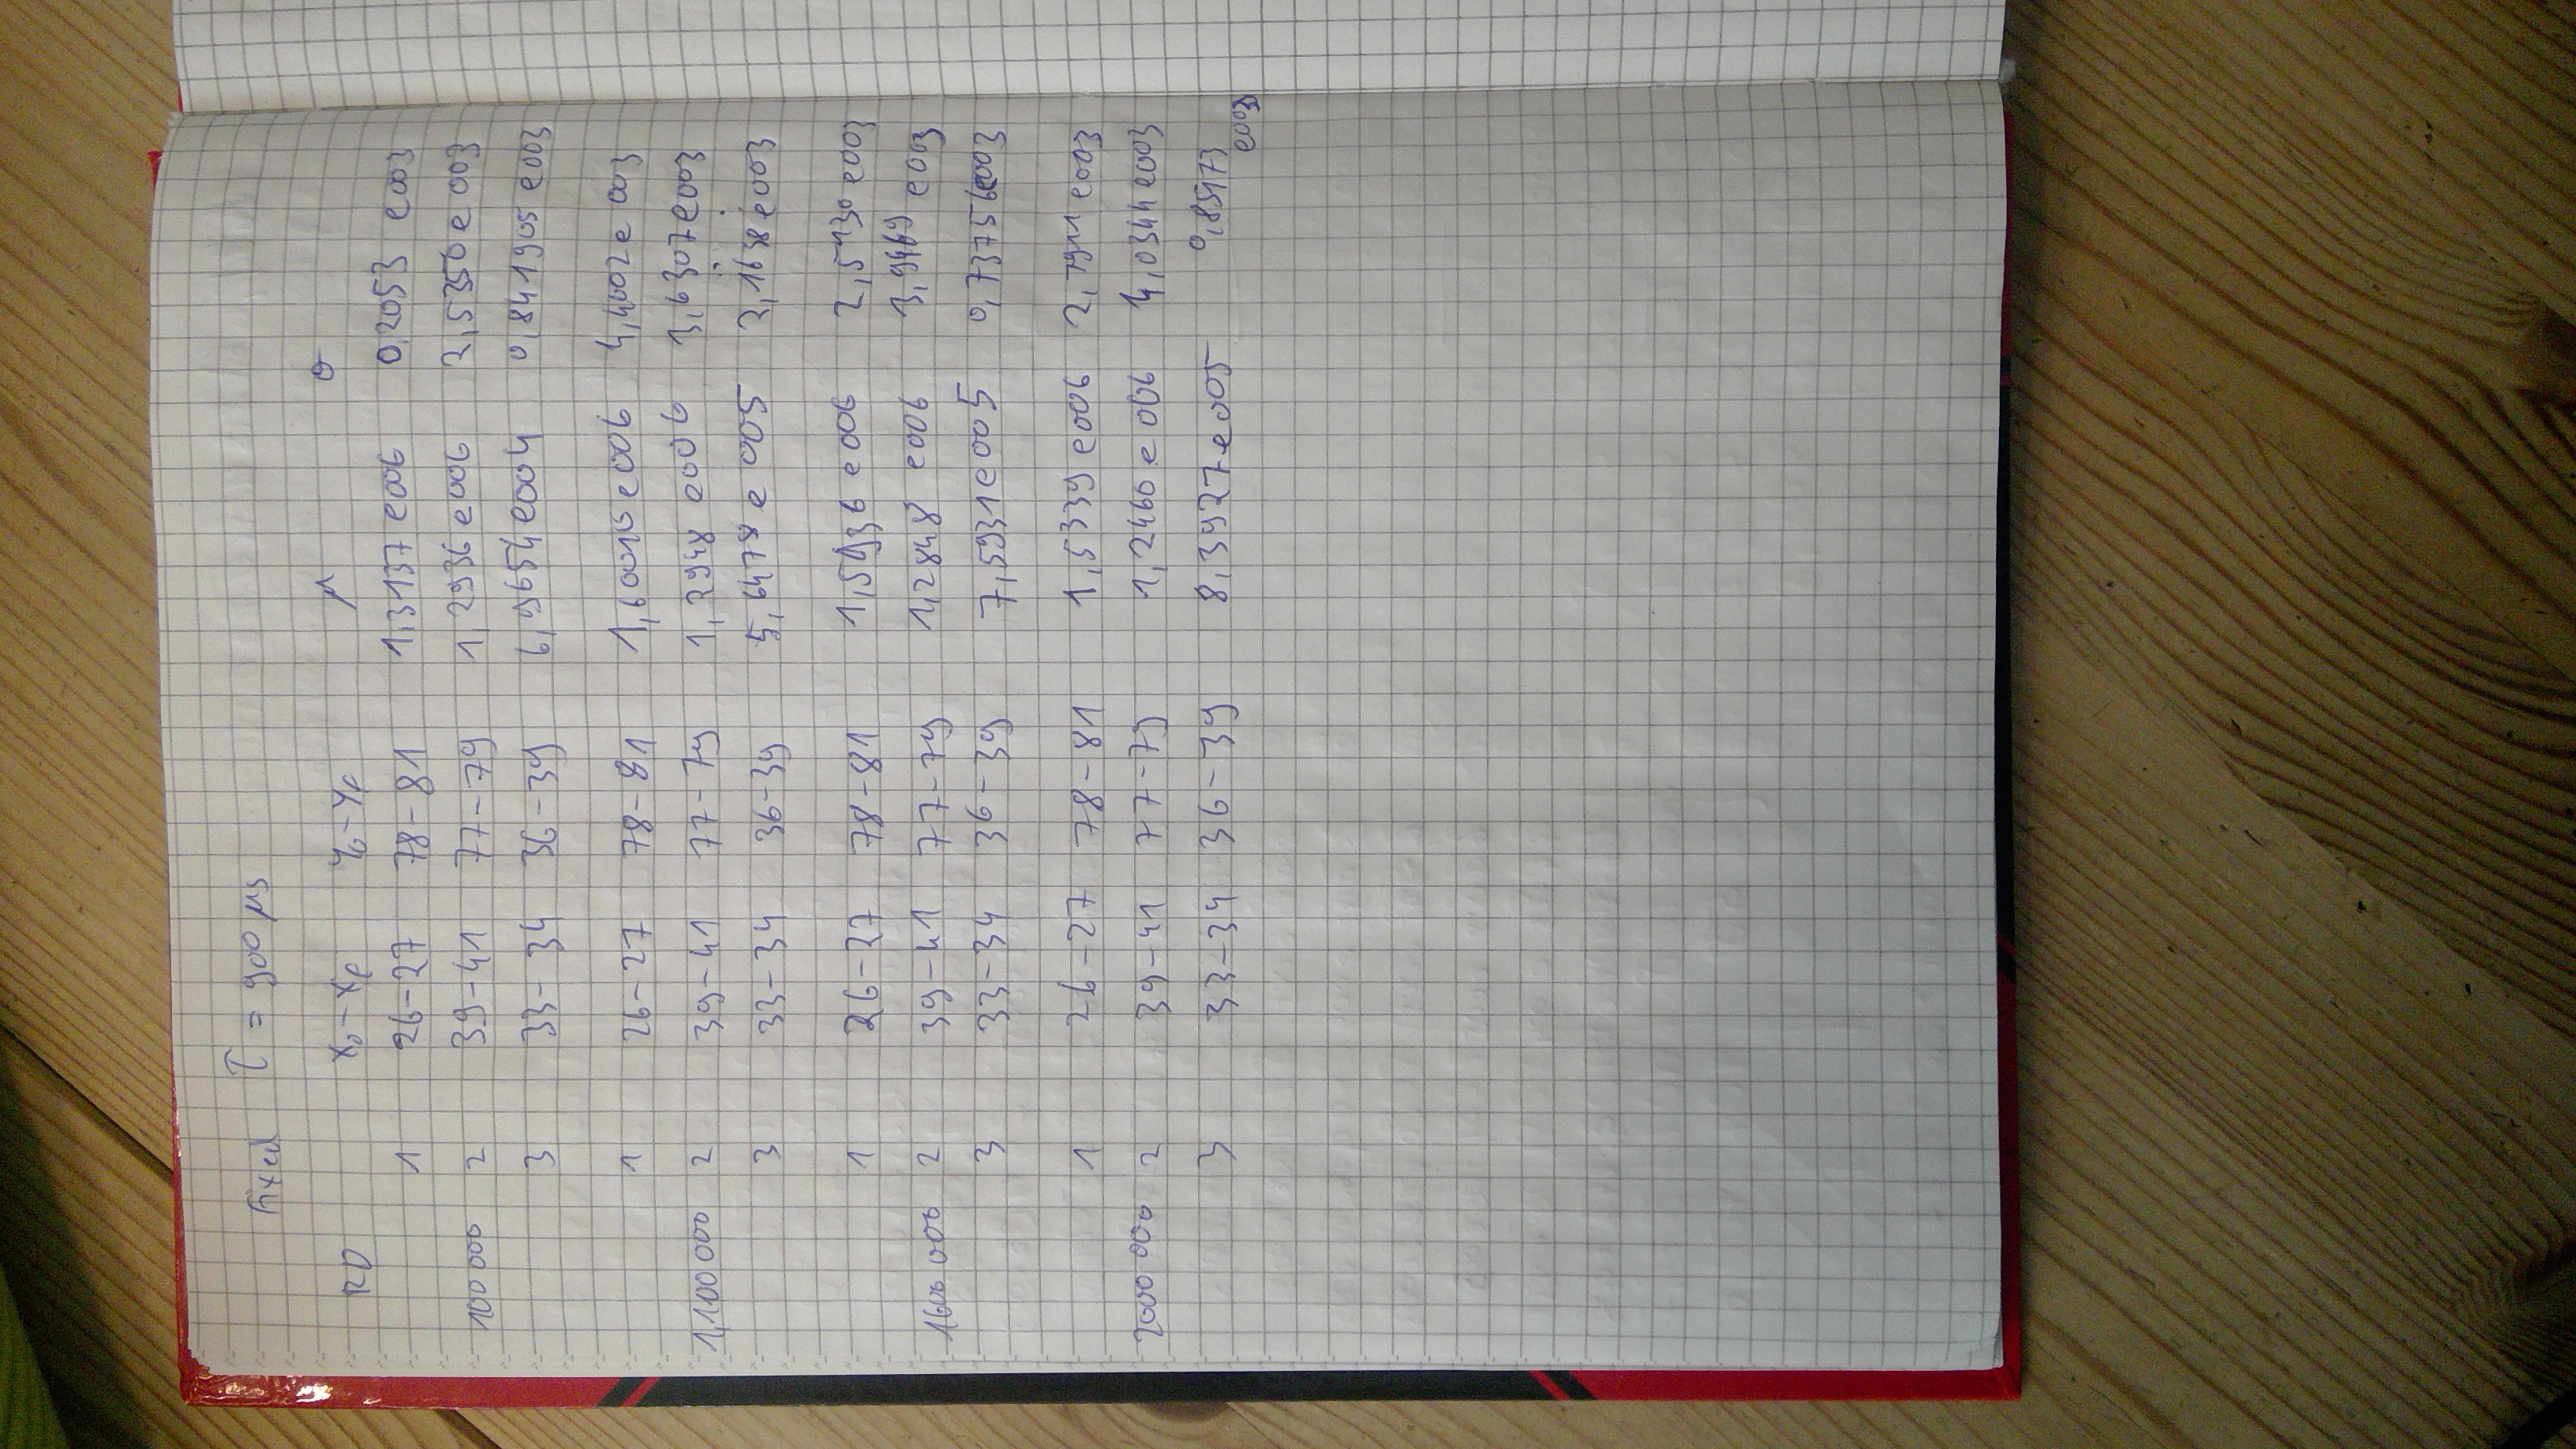 Pixel τ = 900 μs
RD x₀-xp y₀-yp μ σ
1 26-27 78-81 1,3137 e006 0,2053 e003
100 000 2 39-41 77-79 1,2936 e006
3 33-34 36-39 6,9654 e004 0,841905 e003
1 26-27 78-81 4,4002 e003
1,100 000 2 39-41 77-79 1,2948 e006 3,6307 e003
3 33-34 36-39 5,6478 e005 2,1638 e003
1 26-27 78-81
2 39-41 77-79 1,2848 e006 3,9469 e003
3 33-34 36-39 7,5931 e005 0,73756 e003
1 26-27 78-81 1,5339 e006
2000 000 2 39-41 77-79 1,2460 e006 4,0344 e003
3 33-34 36-39 8,3927 e005 0,85173
e003